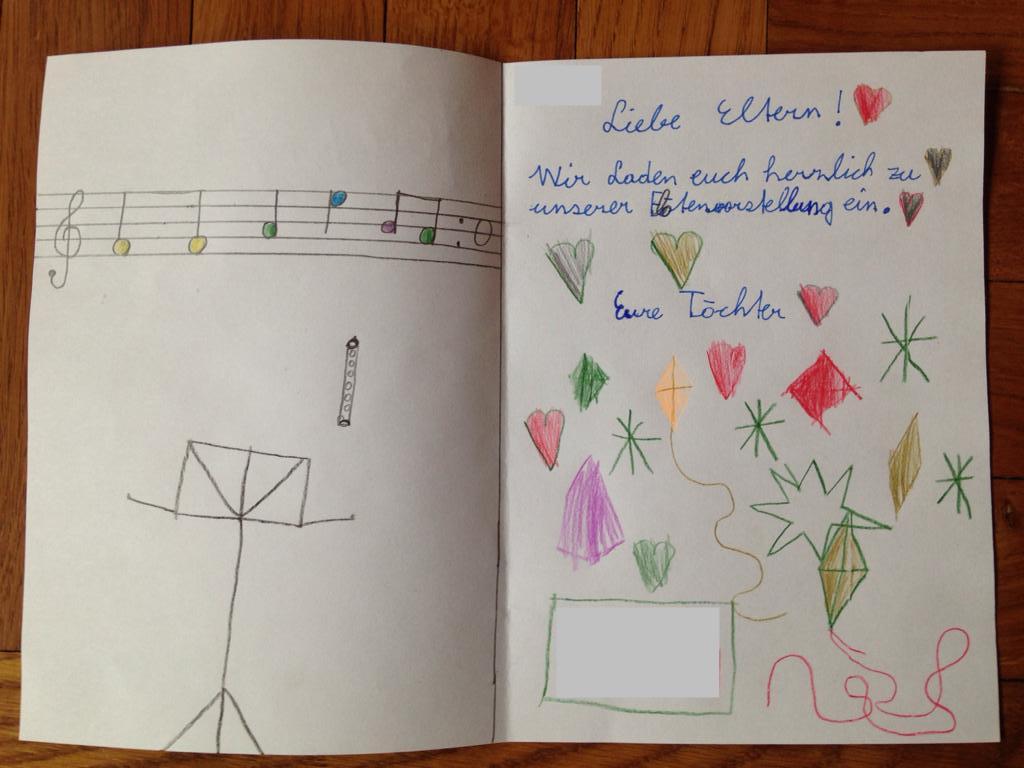 Liebe Eltern!
Wir Laden euch herzlich zu
unserer Flötenvorstellung ein.
Eure Töchter